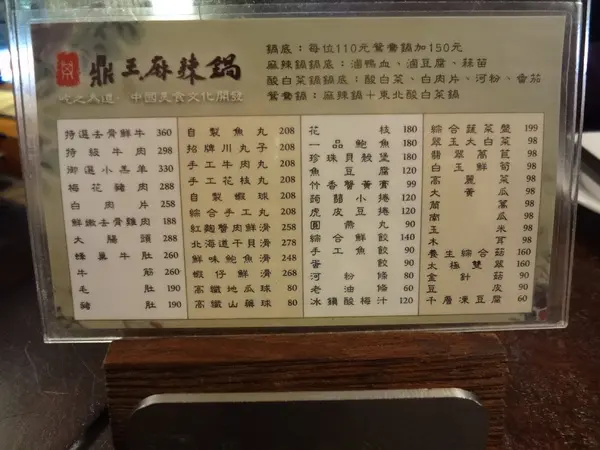 鼎王麻辣鍋
吃之為道·中國美食文化開發
鍋底：每位110元鴛鴦鍋加150元
麻辣鍋鍋底：滷鴨血、滷豆腐、蒜苗
酸白菜鍋鍋底：酸白菜、白肉片、河粉、番茄
鴛鴦鍋：麻辣鍋＋東北酸白菜鍋
特選去骨鮮牛 360
特級牛肉 298
御選小羔羊 330
梅花豬肉 288
白肉片 258
鮮嫩去骨雞肉 188
大腸頭 288
蜂巢牛肚 260
牛筋 260
毛肚 190
豬肚 190
自製魚丸 208
招牌川丸子 208
手工牛肉丸 208
手工花枝丸 208
自製蝦球 208
綜合手工丸 208
紅麴蟹肉鮮滑 258
北海道干貝滑 278
鮮味鮑魚滑 248
蝦仔鮮滑 268
高纖地瓜球 80
高纖山藥球 80
花枝 180
一品鮑魚 180
珍珠貝殼煲 180
魚豆腐 120
竹香蟹黃膏 99
蒟蒻小捲 120
虎皮豆捲 120
圓燕丸 90
綜合鮮餃 140
手工魚餃 90
蛋餃 90
河粉條 80
老油條 60
冰鎮酸梅汁 120
綜合蔬菜盤 199
翠玉大白菜 98
翡翠萵苣 98
白玉鮮筍 98
高麗菜 98
大黃瓜 98
茼蒿 98
南瓜 98
玉米 98
木耳 98
養生綜合菇 160
太極雙翠 160
金針菇 90
豆皮 90
千層凍豆腐 60